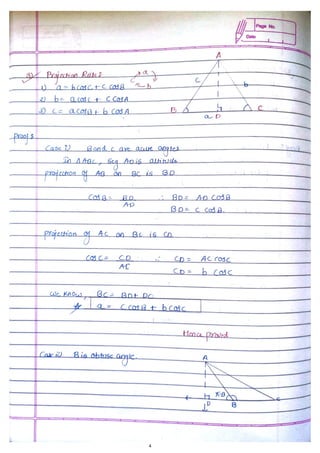 Page No.
Date
A
Projection Rules
1) a = b cosC + c cosB
2) b = a cosC + c cosA
3) c = a cosB + b cosA
a
c b
c b
B C
a D
proof :
Case 1) B and C are acute angles
In ΔABC, seg AD is altitude
projection of AB on BC is BD
cosB = BD ∴ BD = AD cosB
AD
BD = c cosB.
projection of AC on BC is CD
cosC = CD ∴ CD = AC cosC
AC
CD = b cosC
we know, BC = BD + DC
a = c cosB + b cosC
Hence proved
Case ii) B is obtuse angle.
A
π-B
D B C
4